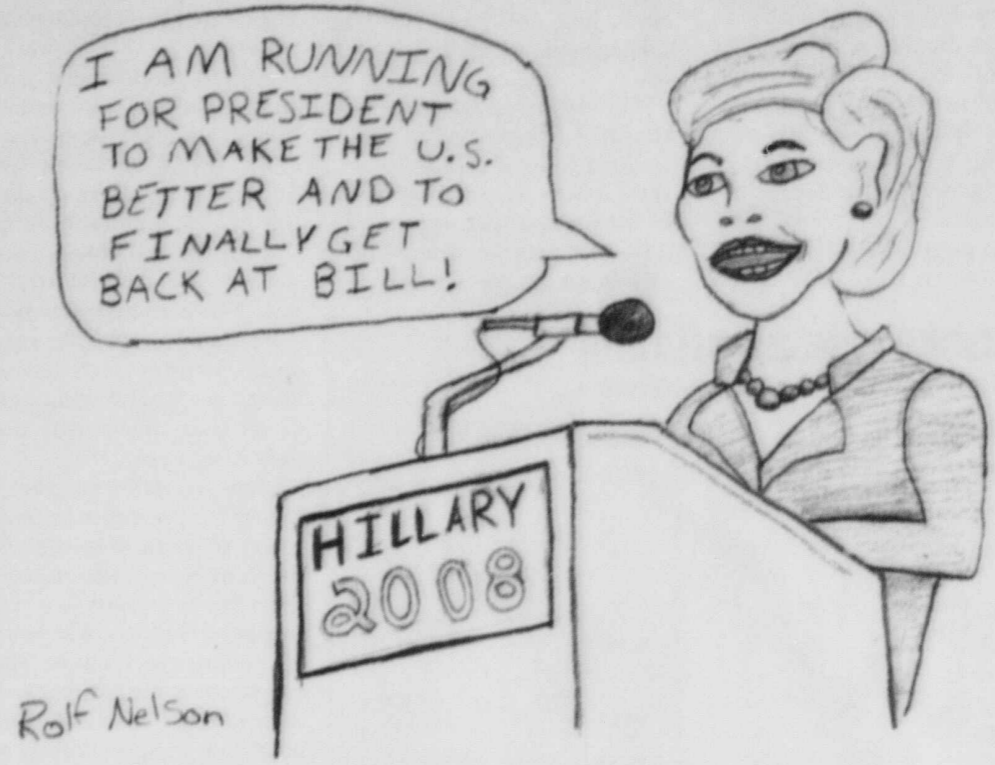 I AM RUNNING
FOR PRESIDENT
TO MAKE THE U.S.
BETTER AND TO
FINALLY GET
BACK AT BILL!
HILLARY
2008
Rolf Nelson